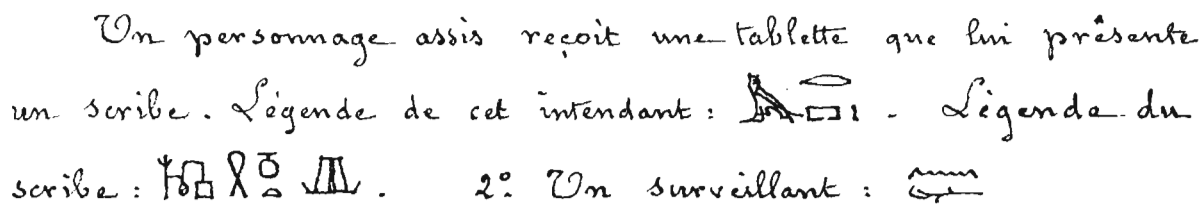 Un personnage assis reçoit une tablette que lui présente
un scribe. Légende de cet intendant : 𓅓𓂋𓉐𓏤 - Légende du
scribe : . 2º Un surveillant :